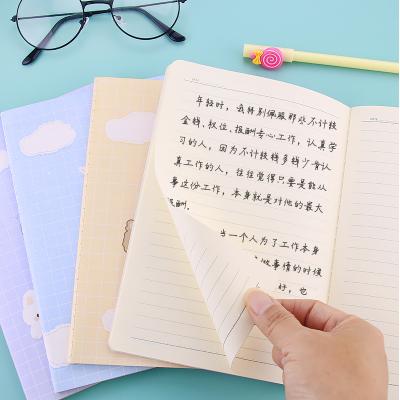 年轻时，我特别佩服那些不计较
金钱、权位、报酬专心工作，认真学
习的人，因为不计较钱多钱少肯认
真工作的人，往往觉得只要是能从
事这份工作，本身就是对他的最大
报酬。
当一个人为了工作本身
做事情的时候
好，也